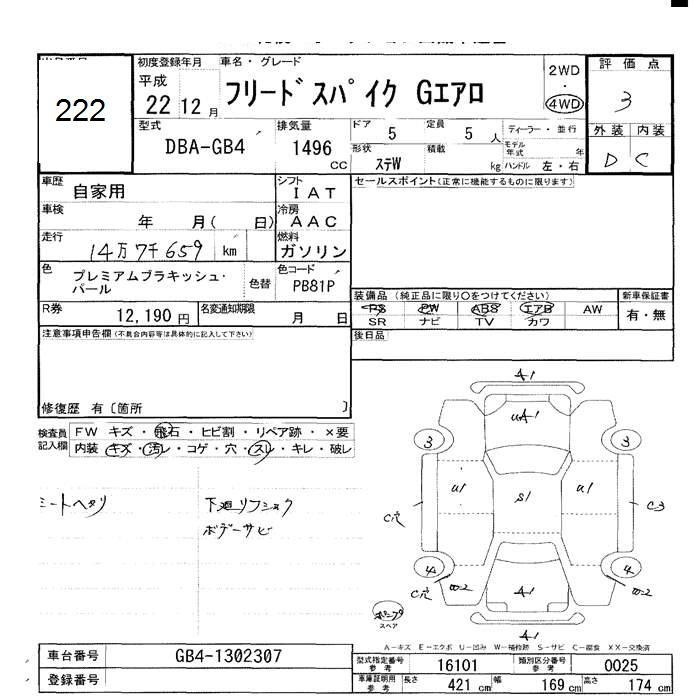 222
初度登録年月
車名・グレード
平成
22 12 月
フリードスパイク Gエアロ
2WD
・
4WD
評価点
3
外装 内装
D C
型式
DBA-GB4
排気量
1496
CC
ドア 5
定員 5 人
ディーラー・並行
形状 ステW
積載 kg
モデル年式 年
ハンドル 左・右
車歴 自家用
シフト IAT
セールスポイント(正常に機能するものに限ります)
車検 年 月( 日)
冷房 AAC
走行 14万7千659 km
燃料 ガソリン
色 プレミアムブラキッシュ・パール
色替
色コード PB81P
装備品 (純正品に限り○をつけてください)
新車保証書
PS PW ABS エアB AW
有・無
SR ナビ TV カワ
R券 12,190 円
名変通知期限 月 日
後日品
注意事項申告欄(不具合内容等は具体的に記入して下さい)
修復歴 有〔箇所 〕
検査員記入欄
FW キズ・飛石・ヒビ割・リペア跡・×要
内装 キズ・汚レ・コゲ・穴・スレ・キレ・破レ
シートヘタリ
下廻リフショク
ボデーサビ
A1
uA1
3 3
u1 S1 u1
C穴 C3
4 4
C穴 W-2 A1 W-2
スペア
A1
A-キズ E-エクボ U-凹み W-補修跡 S-サビ C-腐食 XX-交換済
車台番号 GB4-1302307
登録番号
型式指定番号 参考 16101
類別区分番号 参考 0025
車庫証明用 参考 長さ 421 cm 幅 169 cm 高さ 174 cm